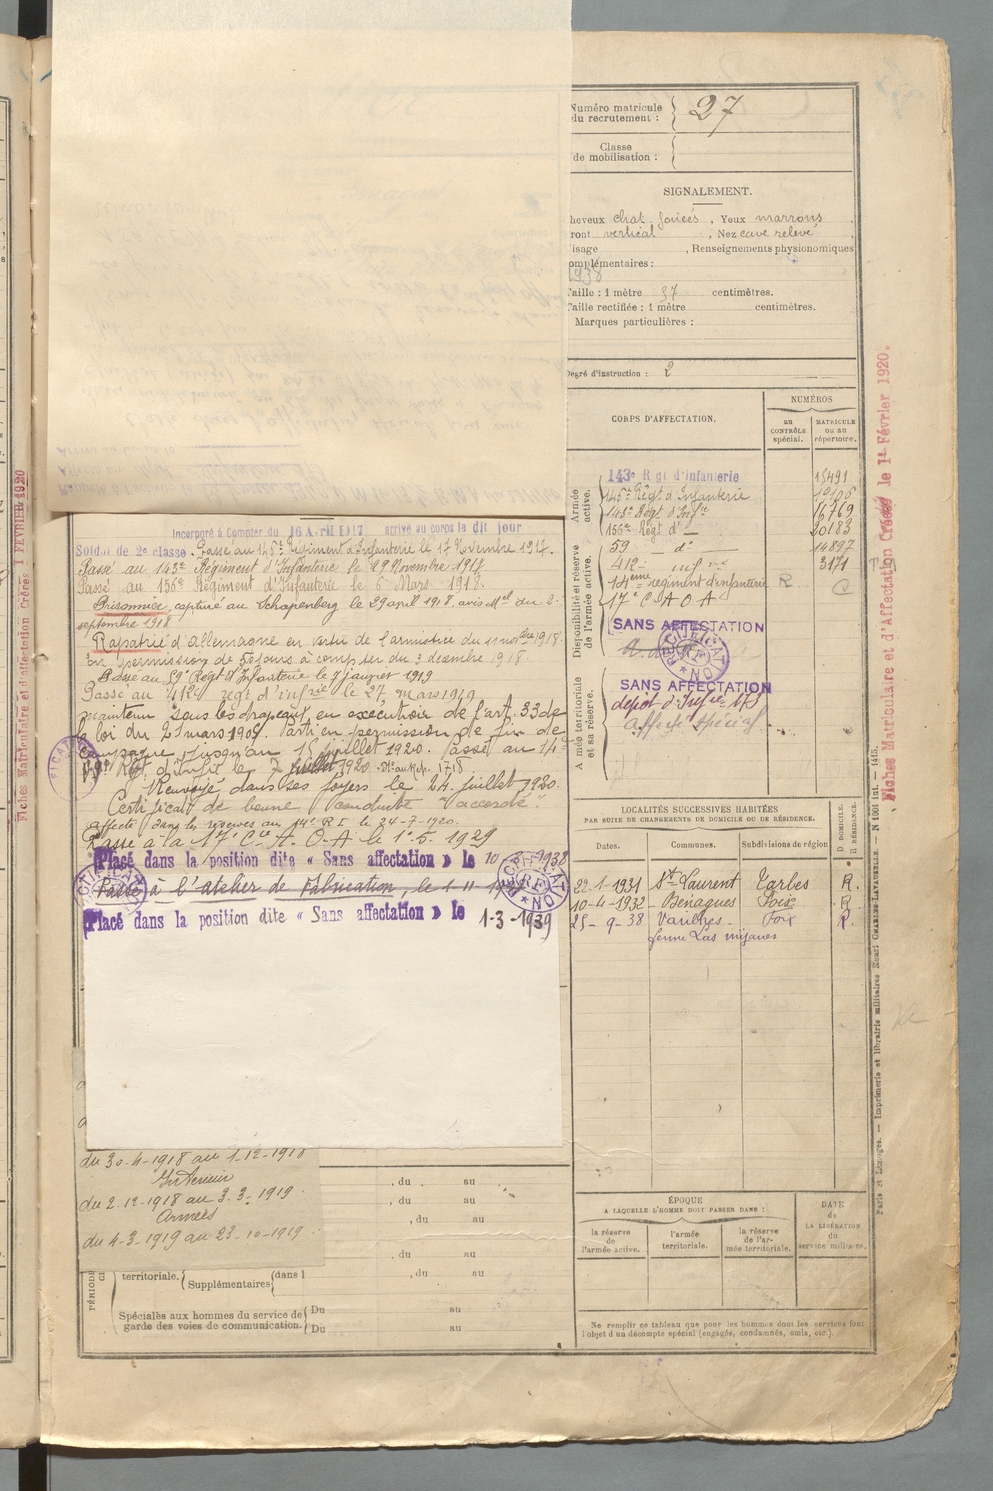 Numéro matricule
du recrutement : 27
Classe
de mobilisation :
SIGNALEMENT.
heveux chat. foncés, Yeux marrons,
ront vertical, Nez cave relevé,
isage , Renseignements physionomiques
omplémentaires :
1938
Taille : 1 mètre 57 centimètres.
Taille rectifiée : 1 mètre centimètres.
Marques particulières :
Degré d'instruction : 2
CORPS D'AFFECTATION.
NUMÉROS
au CONTRÔLE spécial.
MATRICULE ou au répertoire.
Armée active.
143e Rgt d'Infanterie 15491
145e Régt d'Infanterie
143e Régt d'Infie 16769
156e Régt d° 20183
Disponibilité et réserve de l'armée active.
59 d° 14897
412e infie 3171
14eme régiment d'infanterie R
17e C A O A
SANS AFFECTATION
Armée territoriale et sa réserve.
SANS AFFECTATION
dépôt d'Infie 173
affecté spécial
Incorporé à Compter du 16 Avril 1917 arrivé au corps le dit jour
Soldat de 2e classe. Passé au 145e Régiment d'Infanterie le 17 Novembre 1917.
Passé au 143e Régiment d'Infanterie le 29 Novembre 1917
Passé au 156e Régiment d'Infanterie le 6 Mars 1918.
Prisonnier, capturé au Schapenberg le 29 avril 1918, avis Mel du 2
septembre 1918
Rapatrié d'allemagne en vertu de l'armistice du 11 novbre 1918.
En permission de 30 jours à compter du 3 décembre 1918.
Passé au 59e Régt d'Infanterie le 7 janvier 1919
Passé au 412e régt d'infrie le 27 mars 1919
maintenu sous les drapeaux en exécution de l'art. 33 de
la loi du 21 mars 1905. Parti en permission de fin de
campagne jusqu'au 15 juillet 1920. Passé au 14e
Régt d'Infie le 7 juillet 1920
Renvoyé dans ses foyers le 24 juillet 1920.
Certificat de bonne conduite "accordé".
affecté dans les réserves au 14e R I le 24-7-1920.
Passé à la 17e Cie A.O.A le 1er 5 1929
Placé dans la position dite « Sans affectation » le 10 1938
Passé à l'atelier de Fabrication, le 1-11-19
Placé dans la position dite « Sans affectation » le 1-3-1939
RECTIFICATION
RF
LOCALITÉS SUCCESSIVES HABITÉES
PAR SUITE DE CHANGEMENTS DE DOMICILE OU DE RÉSIDENCE.
Dates. Communes. Subdivisions de région D DOMICILE. R RÉSIDENCE.
22-1-1931 St Laurent Tarbes R.
10-4-1932 Benagues Foix R
25-9-38 Varilhes Foix R.
ferme Las mijanes
du 30-4-1918 au 1-12-1918
Intérieur
du 2-12-1918 au 3-3-1919
Armées
du 4-3-1919 au 23-10-1919
, du au
, du au
, du au
, du au
PÉRIODE
territoriale. Supplémentaires dans l , du au
Spéciales aux hommes du service de Du au
garde des voies de communication. Du au
ÉPOQUE
A LAQUELLE L'HOMME DOIT PASSER DANS :
la réserve de l'armée active.
l'armée territoriale.
la réserve de l'armée territoriale.
DATE de LA LIBÉRATION du service militaire.
Ne remplir ce tableau que pour les hommes dont les services font
l'objet d'un décompte spécial (engagés, condamnés, omis, etc.).
Fiches Matriculaire et d'Affectation Créées le 1er Février 1920.
Fiches Matriculaire et d'Affectation Créées 1 FEVRIER 1920
Paris et Limoges. — Imprimerie et librairie militaires Henri CHARLES-LAVAUZELLE.